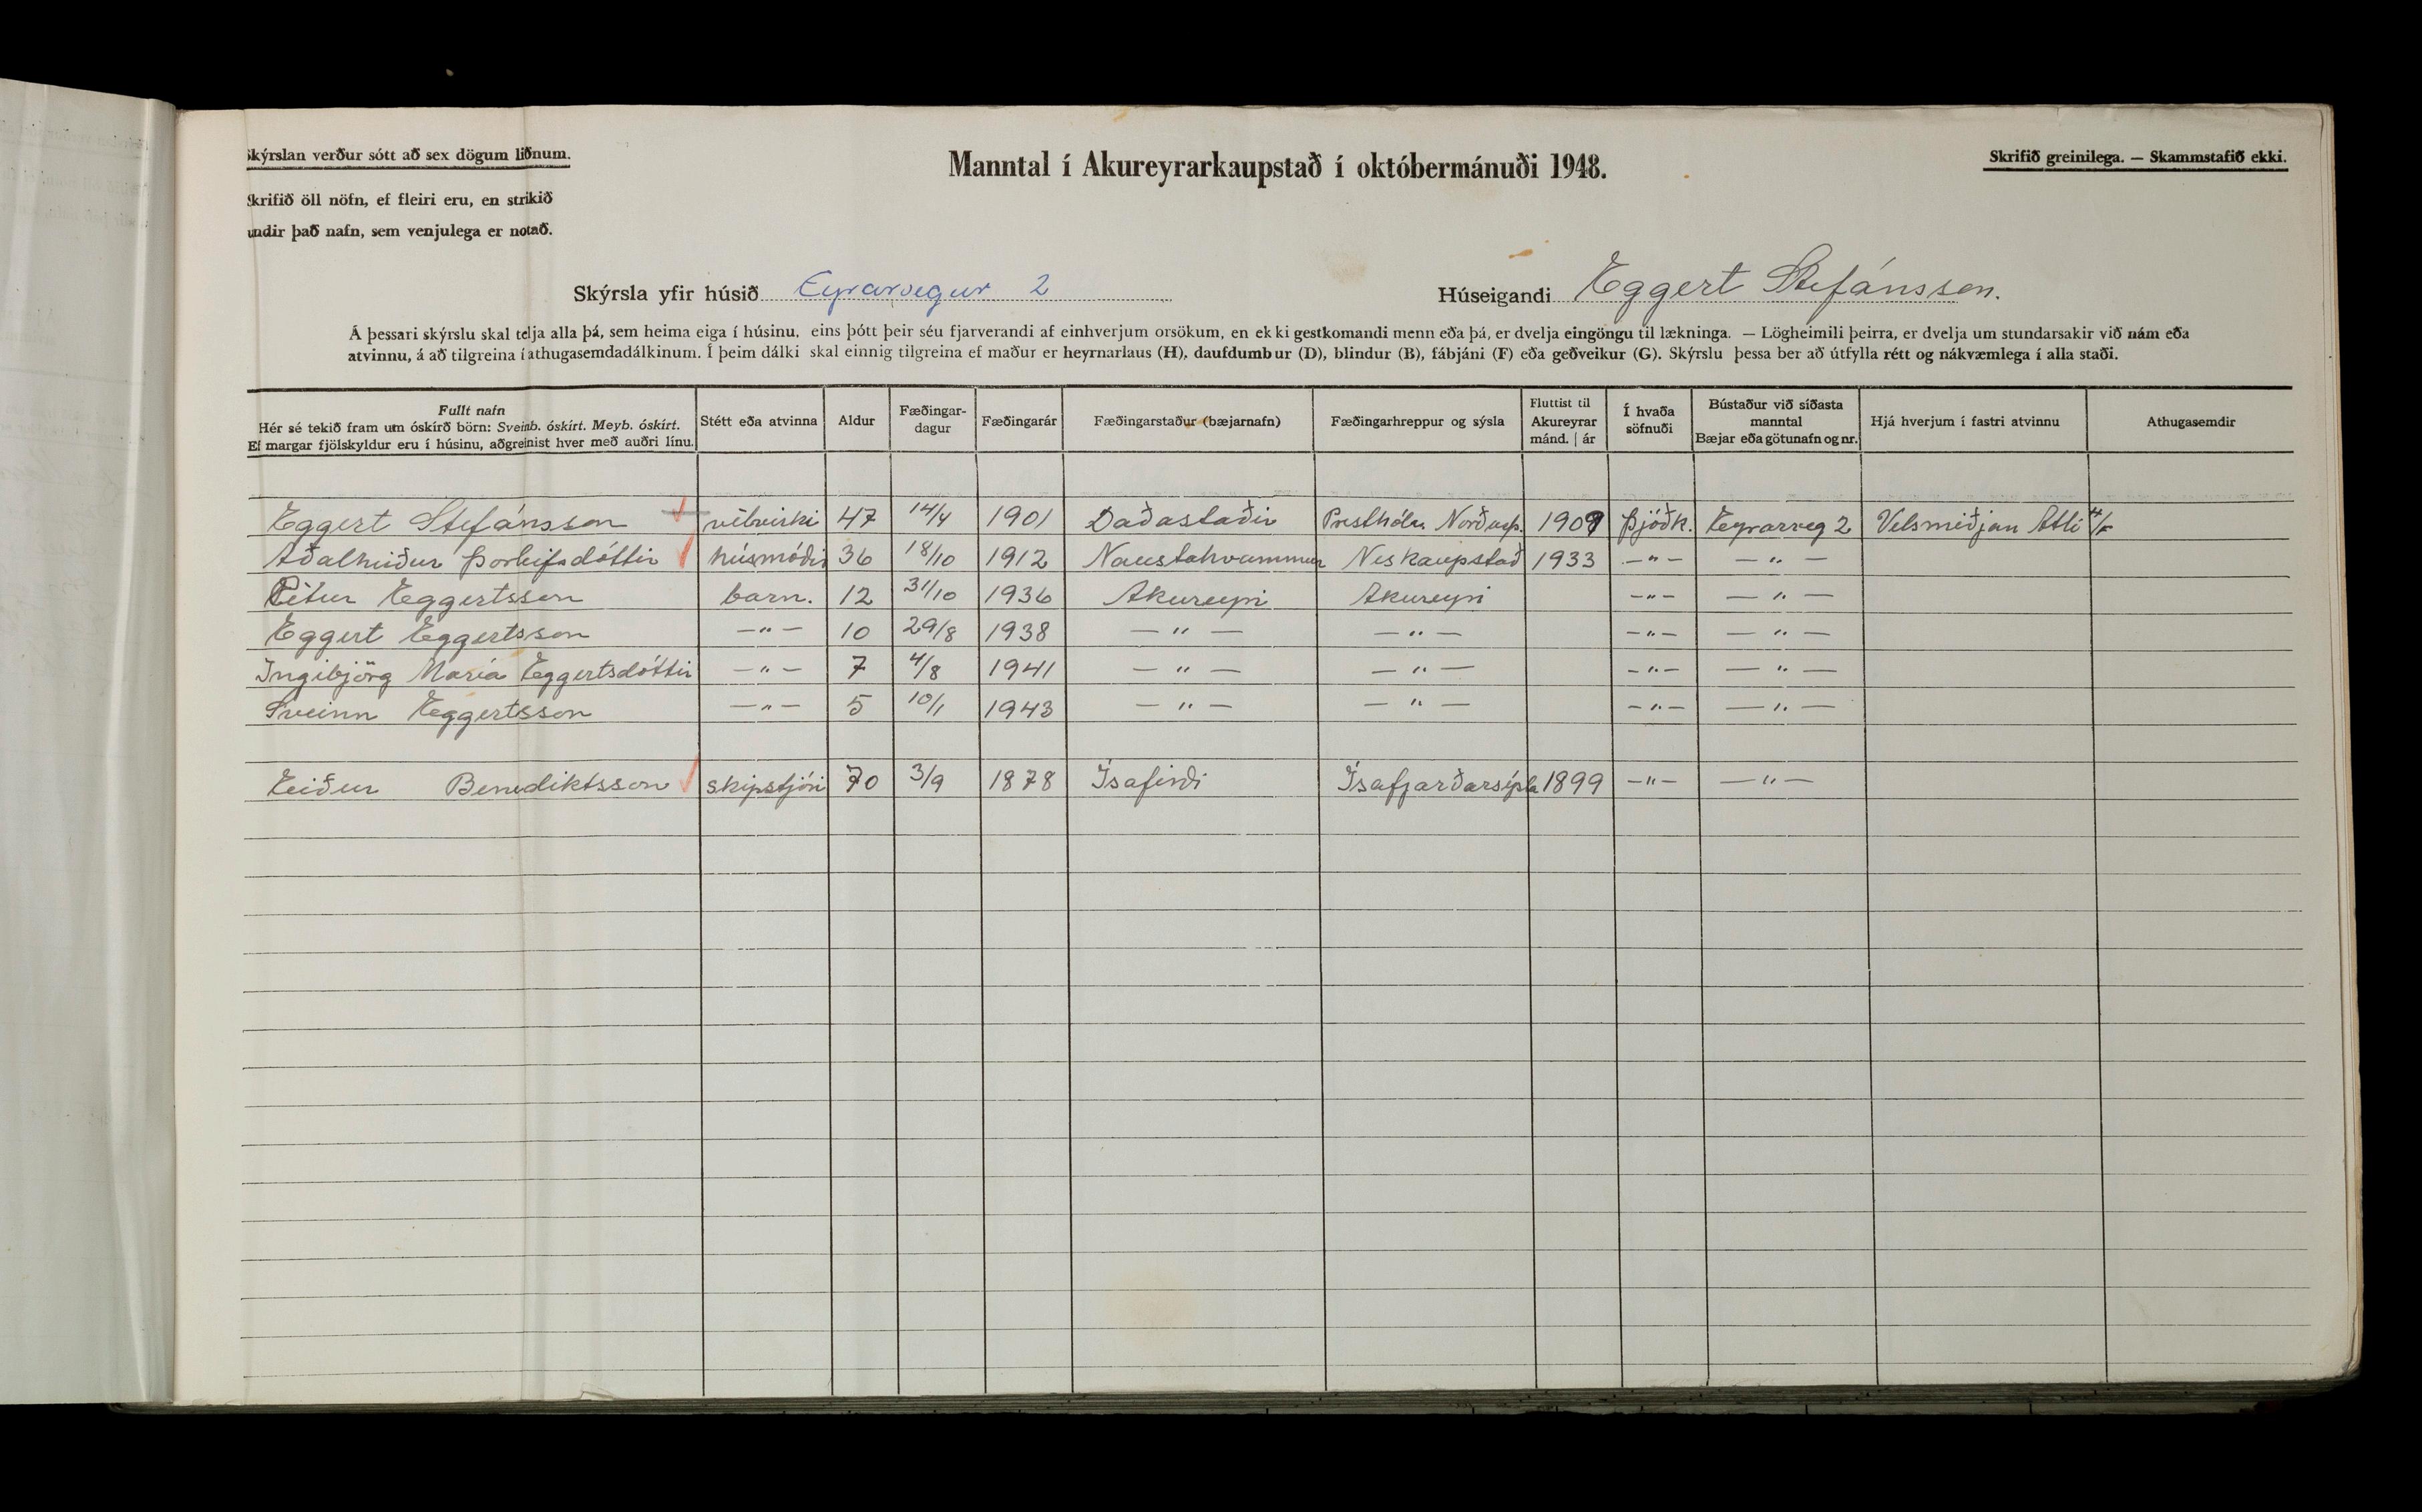 Skýrslan verður sótt að sex dögum liðnum.
Skrifið öll nöfn, ef fleiri eru, en strikið
undir það nafn, sem venjulega er notað.
Manntal í Akureyrarkaupstað í októbermánuði 1948.
Skrifið greinilega. — Skammstafið ekki.
Skýrsla yfir húsið Eyrarvegur 2
Húseigandi Eggert Stefánsson.
Á þessari skýrslu skal telja alla þá, sem heima eiga í húsinu, eins þótt þeir séu fjarverandi af einhverjum orsökum, en ekki gestkomandi menn eða þá, er dvelja eingöngu til lækninga. — Lögheimili þeirra, er dvelja um stundarsakir við nám eða
atvinnu, á að tilgreina í athugasemdadálkinum. Í þeim dálki skal einnig tilgreina ef maður er heyrnarlaus (H), daufdumbur (D), blindur (B), fábjáni (F) eða geðveikur (G). Skýrslu þessa ber að útfylla rétt og nákvæmlega í alla staði.
Fullt nafn
Hér sé tekið fram um óskírð börn: Sveinb. óskírt. Meyb. óskírt.
Ef margar fjölskyldur eru í húsinu, aðgreinist hver með auðri línu.
Stétt eða atvinna
Aldur
Fæðingar-
dagur
Fæðingarár
Fæðingarstaður (bæjarnafn)
Fæðingarhreppur og sýsla
Fluttist til
Akureyrar
mánd. | ár
Í hvaða
söfnuði
Bústaður við síðasta
manntal
Bæjar eða götunafn og nr.
Hjá hverjum í fastri atvinnu
Athugasemdir
Eggert Stefánsson vélvirki 47 14/4 1901 Daðastaðir Presthólar Norðurþ. 1909 Þjóðk. Eyrarveg 2 Velsmiðjan Atli H/F
Aðalheiður Þorleifsdóttir húsmóðir 36 18/10 1912 Naustahvammur Neskaupstað 1933 —"— —"—
Pétur Eggertsson barn. 12 31/10 1936 Akureyri Akureyri —"— —"—
Eggert Eggertsson —"— 10 29/8 1938 —"— —"— —"— —"—
Ingibjörg María Eggertsdóttir —"— 7 4/8 1941 —"— —"— —"— —"—
Sveinn Eggertsson —"— 5 10/1 1943 —"— —"— —"— —"—
Eiður Benediktsson skipstjóri 70 3/9 1878 Ísafirði Ísafjarðarsýsla 1899 —"— —"—